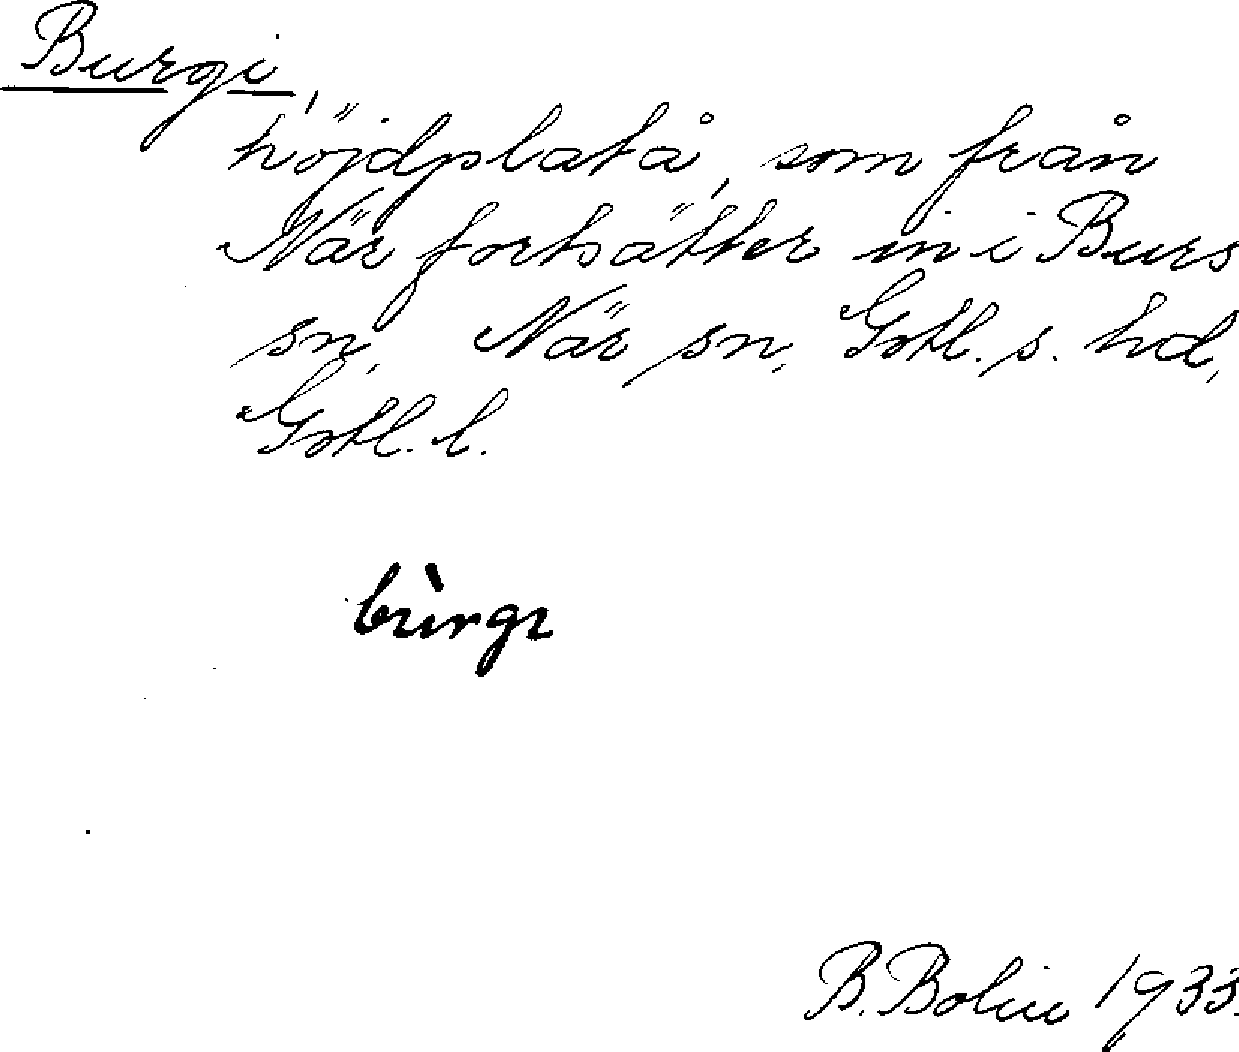 Burgi,
höjdplatå, som från
När fortsätter in i Burs
sn, När sn, Gotl. s. hd,
Gotl. l.
bùrgɩ
B. Bolin 1933.